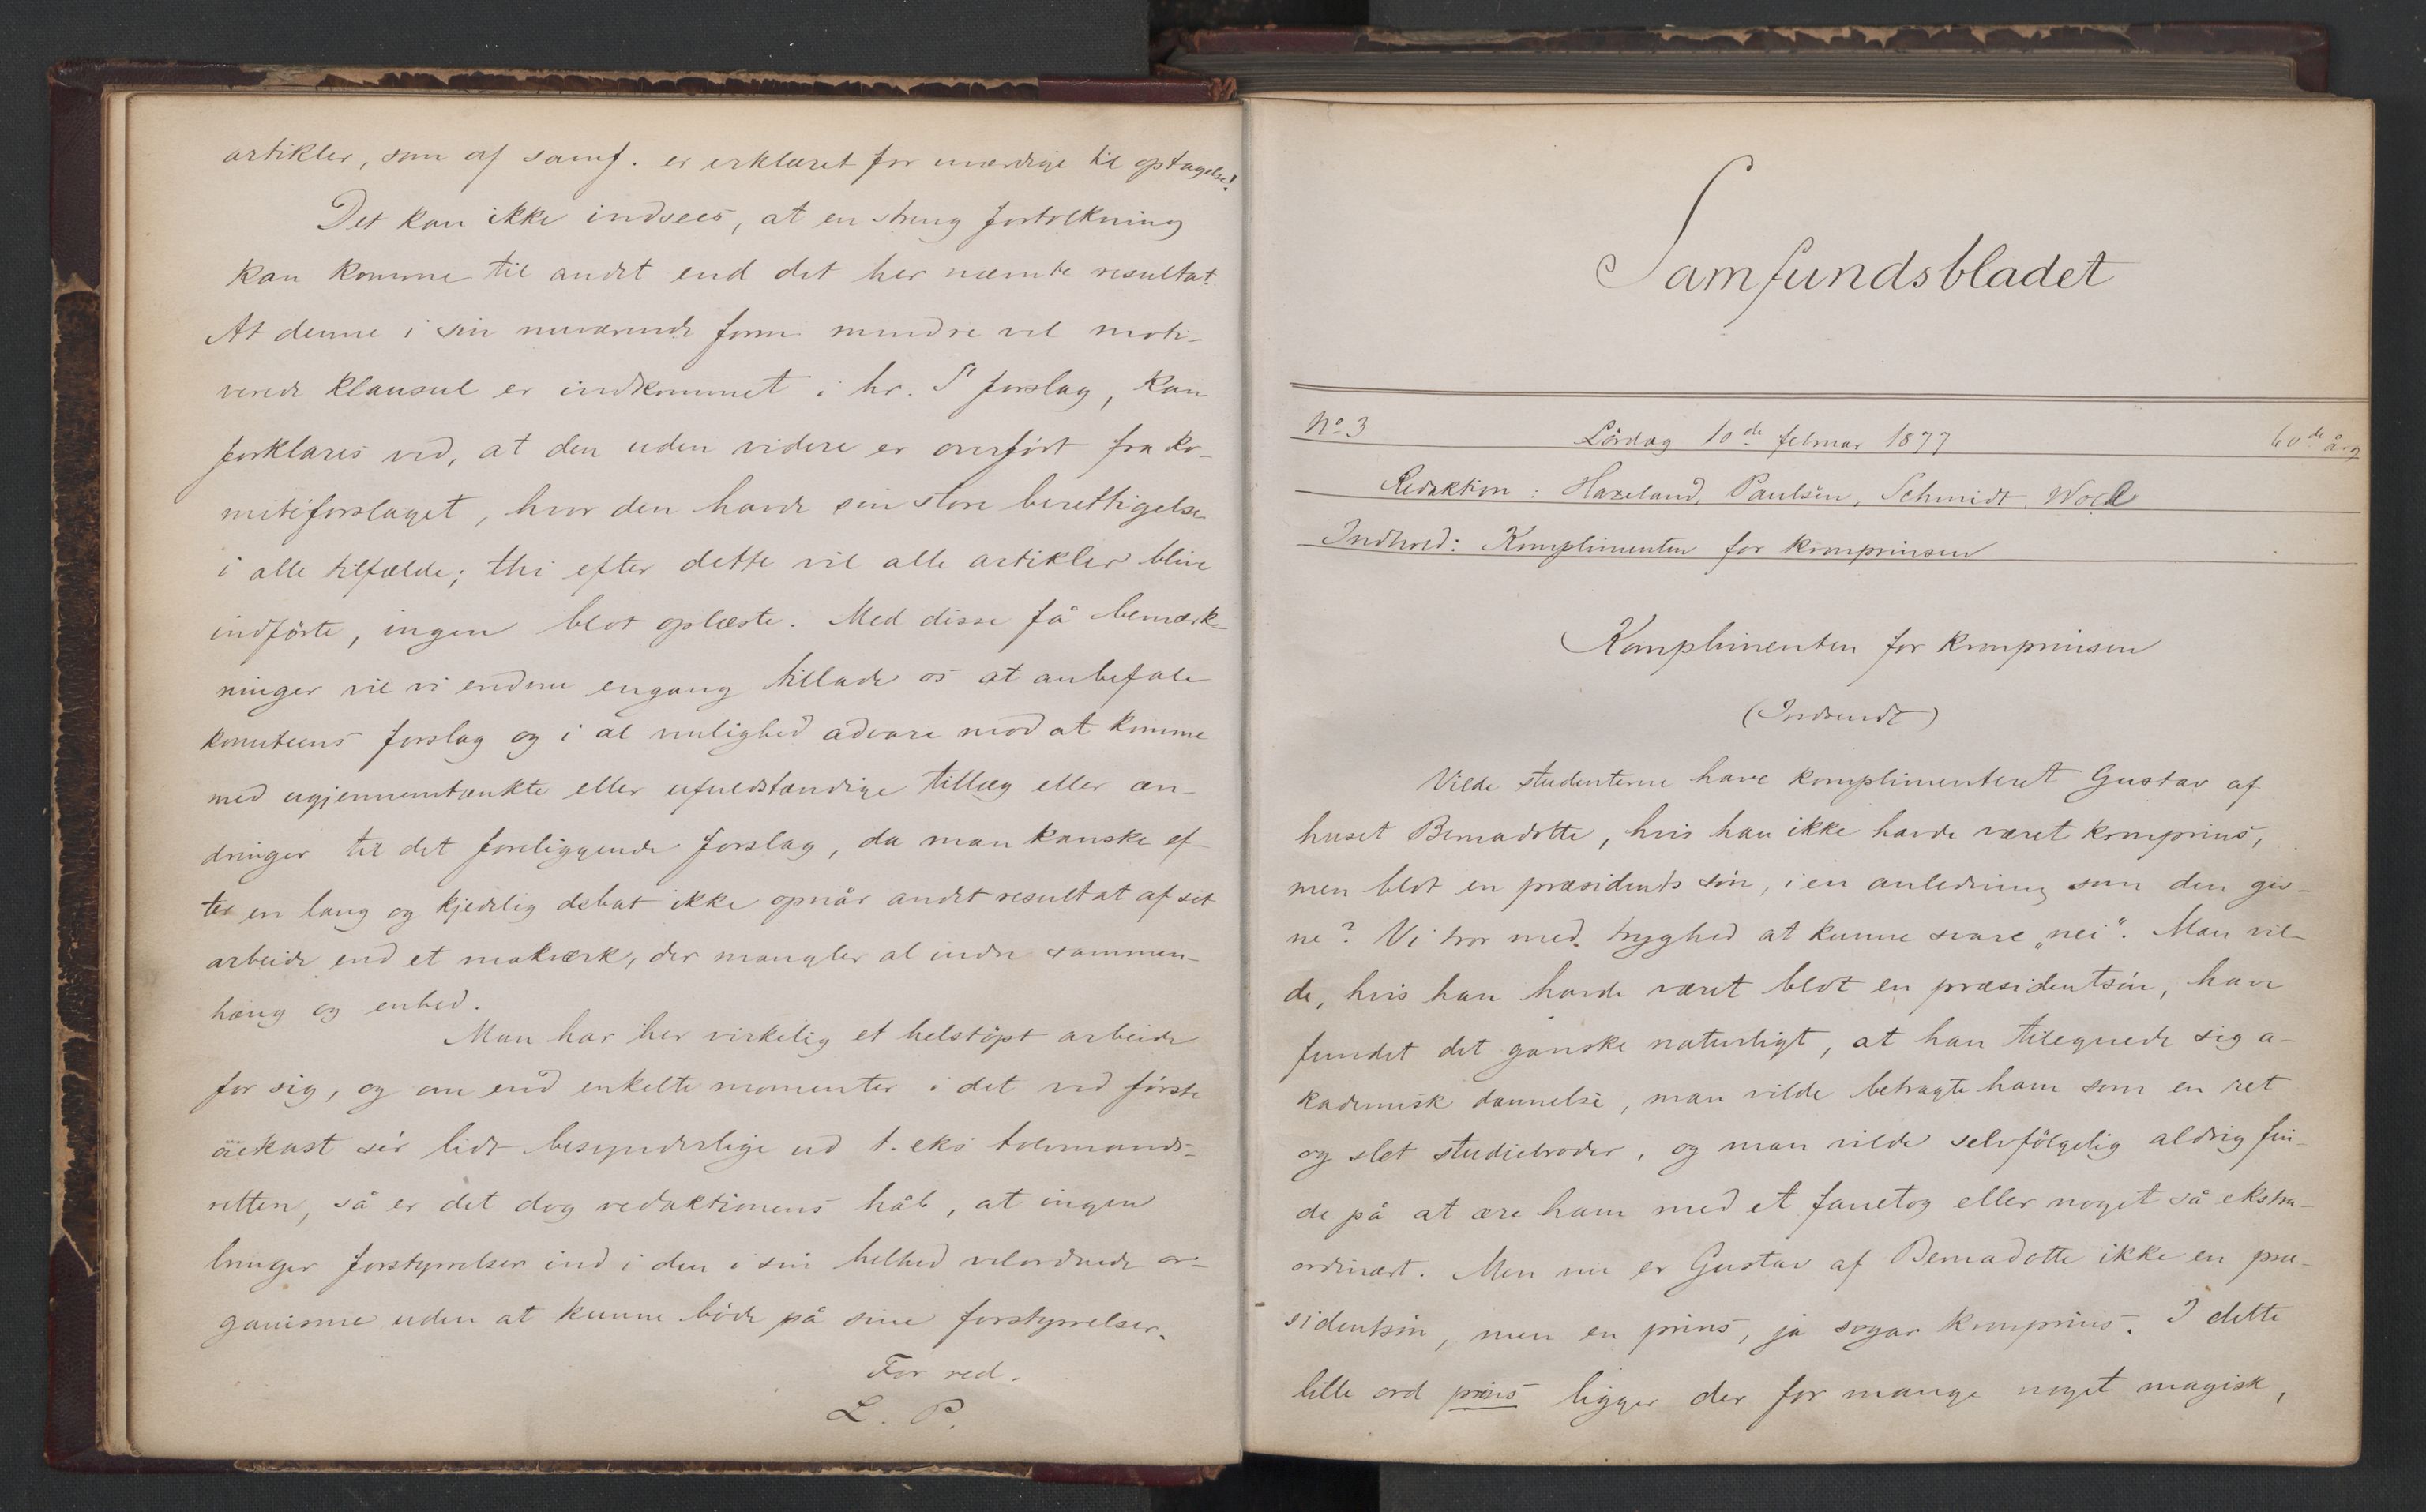 artikler, som af samf. er erklæret for uværdige til optagelse!
Det kan ikke indsees, at en streng fortolkning
kan komme til andet end det her nævnte resultat.
At denne i sin nuværende form mindre vel moti-
verede klausul er indkommet i hr. S' forslag, kan
forklares ved, at den uden videre er overført fra ko-
miteforslaget, hvor den havde sin store berettigelse
i alle tilfælde; thi efter dette vil alle artikler blive
indførte, ingen blot oplæste. Med disse få bemærk-
ninger vil vi endnu engang tillade os at anbefale
komiteens forslag og i al mulighed advare mod at komme
med ugjennemtænkte eller ufuldstændige tillæg eller æn-
dringer til det foreliggende forslag, da man kanske ef-
ter en lang og kjedelig debat ikke opnår andet resultat af sit
arbeide end et makværk, der mangler al indre sammen-
hæng og enhed.
Man har her virkelig et helstøpt arbeide
for sig, og om end enkelte momenter i det ved første
øiekast sér lidt besynderlige ud t. eks tolvmands-
retten, så er det dog redaktionens håb, at ingen
bringer forstyrrelser ind i den i sin helhed velordnede or-
ganisme uden at kunne bøde på sine forstyrrelser.
For red.
L. P.
Samfundsbladet
No 3 Lördag 10de februar 1877 60de årg
Redaktion: Hazeland, Paulsen, Schmidt, Woll
Indhold: Komplimenten for kronprinsen
Komplimenten for kronprinsen
(Indsendt)
Vilde studenterne have komplimenteret Gustav af
huset Bernadotte, hvis han ikke havde været kronprins,
men blot en præsidents søn, i en anledning som den giv-
ne? Vi tror med tryghed at kunne svare „nei“. Man vil-
de, hvis han havde været blot en præsidentsøn, have
fundet det ganske naturligt, at han tilegnede sig a-
kademisk dannelse, man vilde betragte ham som en ret
og slet studiebroder, og man vilde selvfölgelig aldrig fin-
de på at ære ham med et fanetog eller noget så ekstra-
ordinært. Men nu er Gustav af Bernadotte ikke en præ-
sidentsøn, men en prins, ja sogar kronprins. I dette
lille ord prins ligger der for mange noget magisk,